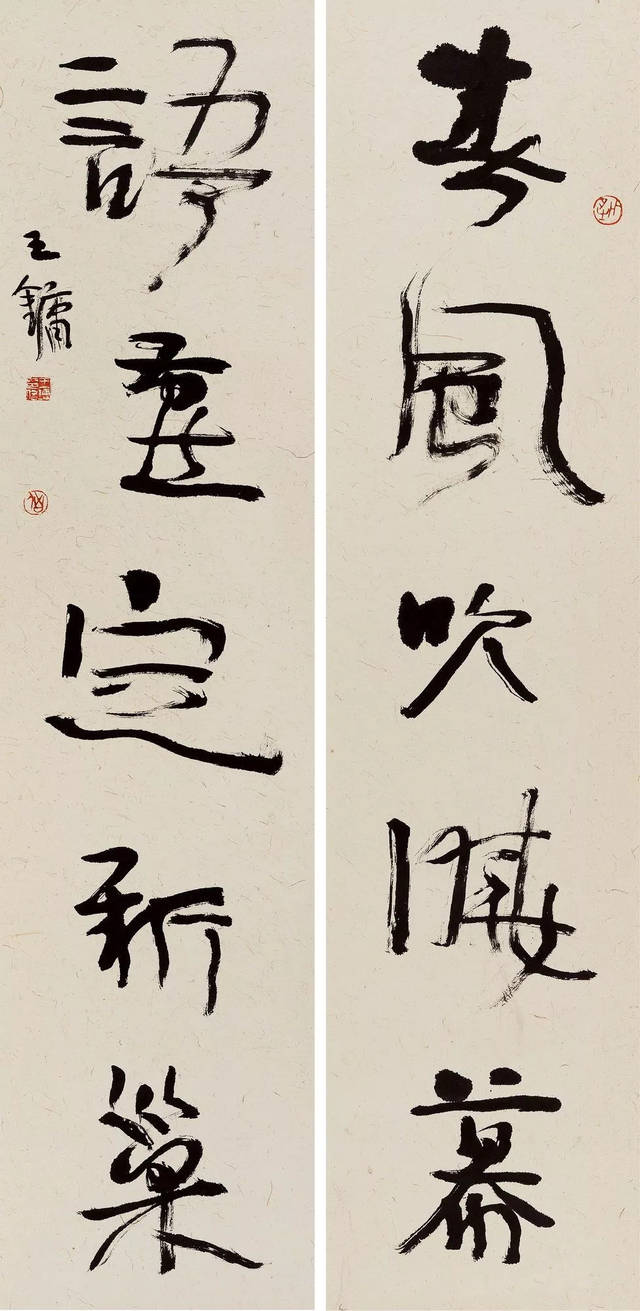 春風吹幕
語燕定新巢
王鏞